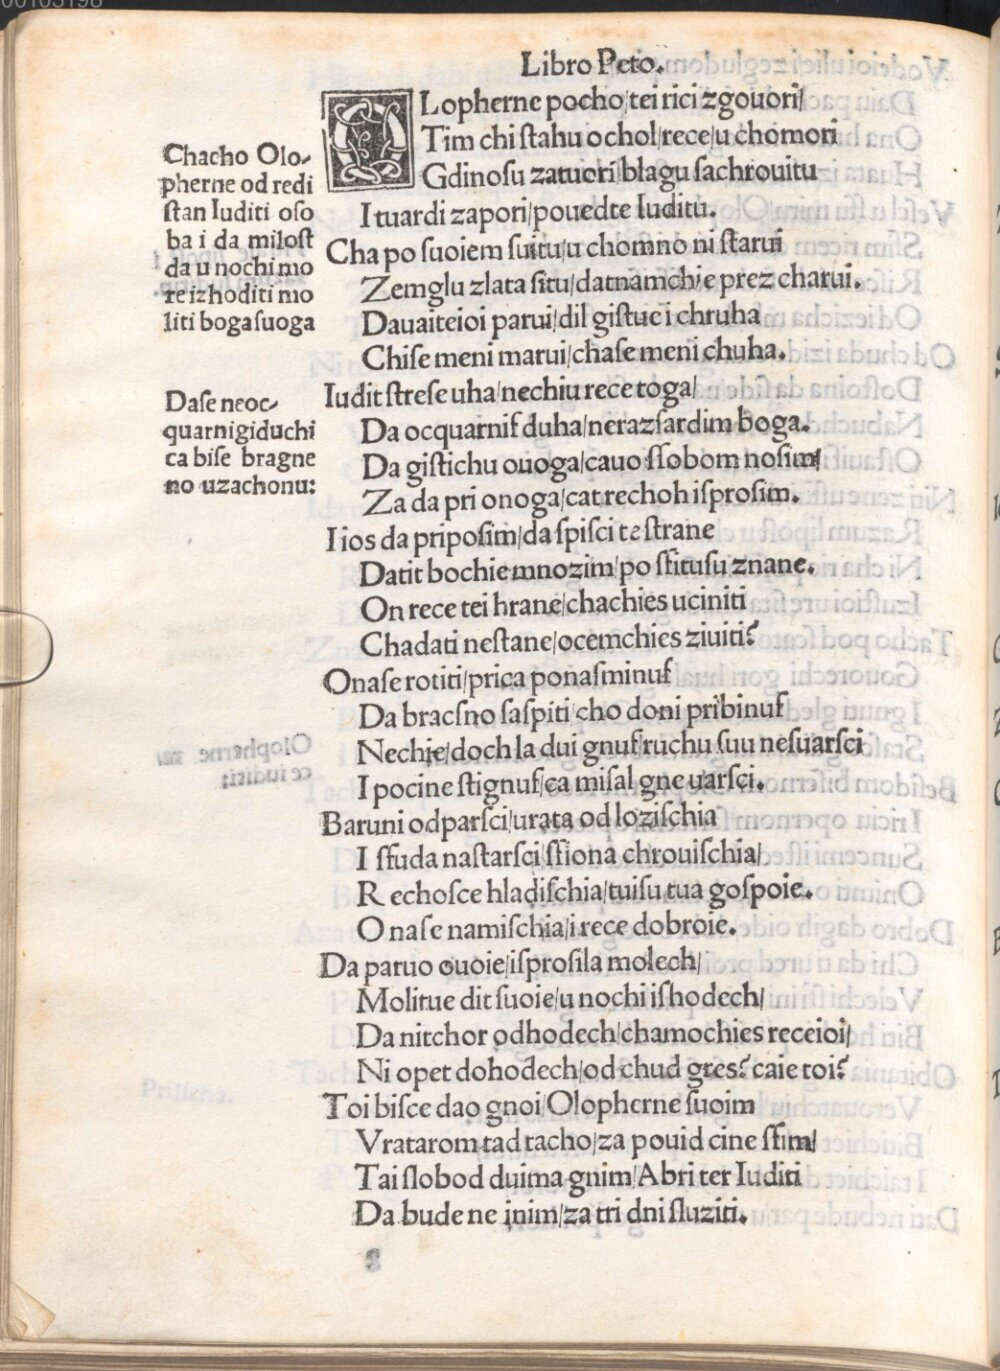 Libro Peto.
OLopherne pocho/tei rici zgouori/
Tim chi ſtahu ochol/rece/u chomori
Gdinoſu zatuori/blagu ſachrouitu
I tuardi zapori/pouedte Iuditu.
Cha po ſuoiem ſuitu/u chomno ni ſtarui
Zemglu zlata ſitu/datnamchie prez charui.
Dauaiteioi parui/dil giſtue i chruha
Chiſe meni marui/chaſe meni chuha.
Iudit ſtreſe uha/nechiu rece toga/
Da ocquarnif duha/nerazſardim boga.
Da giſtichu ouoga/cauo ſſobom noſim/
Za da pri onoga/cat rechoh iſproſim.
I ios da pripoſim/da ſpiſci te ſtrane
Datit bochie mnozim/po ſſituſu znane.
On rece tei hrane/chachies uciniti
Chadati neſtane/ocemchies ziuiti?
Onaſe rotiti/prica ponaſminuf
Da bracſno ſaſpiti cho doni pribinuf
Nechie/dochla dui gnuf ruchu ſuu neſuarſci
I pocine ſtignuf/ca miſal gne uarſci.
Baruni odparſci/urata od loziſchia
I ſſuda naſtarſci/ſſiona chrouiſchia/
Rechoſce hladiſchia/tuiſu tua goſpoie.
Onaſe namiſchia/i rece dobroie.
Da paruo ouoie/iſproſila molech/
Molitue dit ſuoie/u nochi iſhodech/
Da nitchor odhodech/chamochies receioi/
Ni opet dohodech/od chud gres? caie toi?
Toi biſce dao gnoi/Olopherne ſuoim
Vratarom tad tacho/za pouid cine ſſim/
Tai ſlobod duima gnim/Abri ter Iuditi
Da bude ne inim/za tri dni ſluziti.
Chacho Olo-
pherne od redi
ſtan Iuditi oſo
ba i da miloſt
da u nochi mo
re izhoditi mo
liti boga ſuoga
Daſe neoc-
quarnigiduchi
ca biſe bragne
no uzachonu: